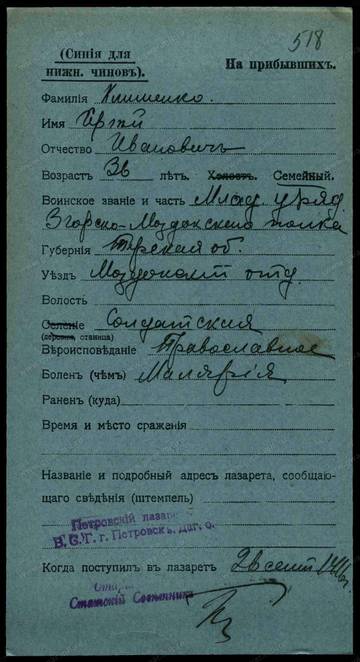 518
(Синія для
нижн. чиновъ).
На прибывшихъ.
Фамилія Клименко.
Имя
Отчество Ивановичъ
Возрастъ 36 лѣтъ. Холостъ. Семейный.
Воинское званіе и часть Млад. уряд.
3 Горско-Моздокскаго полка
Губернія Терская об.
Уѣздъ Моздокскій отд.
Волость
Селеніе Солдатская
(деревня, станица)
Вѣроисповѣданіе Православное
Боленъ (чѣмъ) Малярія
Раненъ (куда)
Время и мѣсто сраженія
Названіе и подробный адресъ лазарета, сообщаю-
щаго свѣдѣнія (штемпель)
Петровскій лазаре
В.С.Г. г. Петровскъ, Даг. о.
Когда поступилъ въ лазаретъ сент 1916г.
Стар
Статскій Совѣтникъ